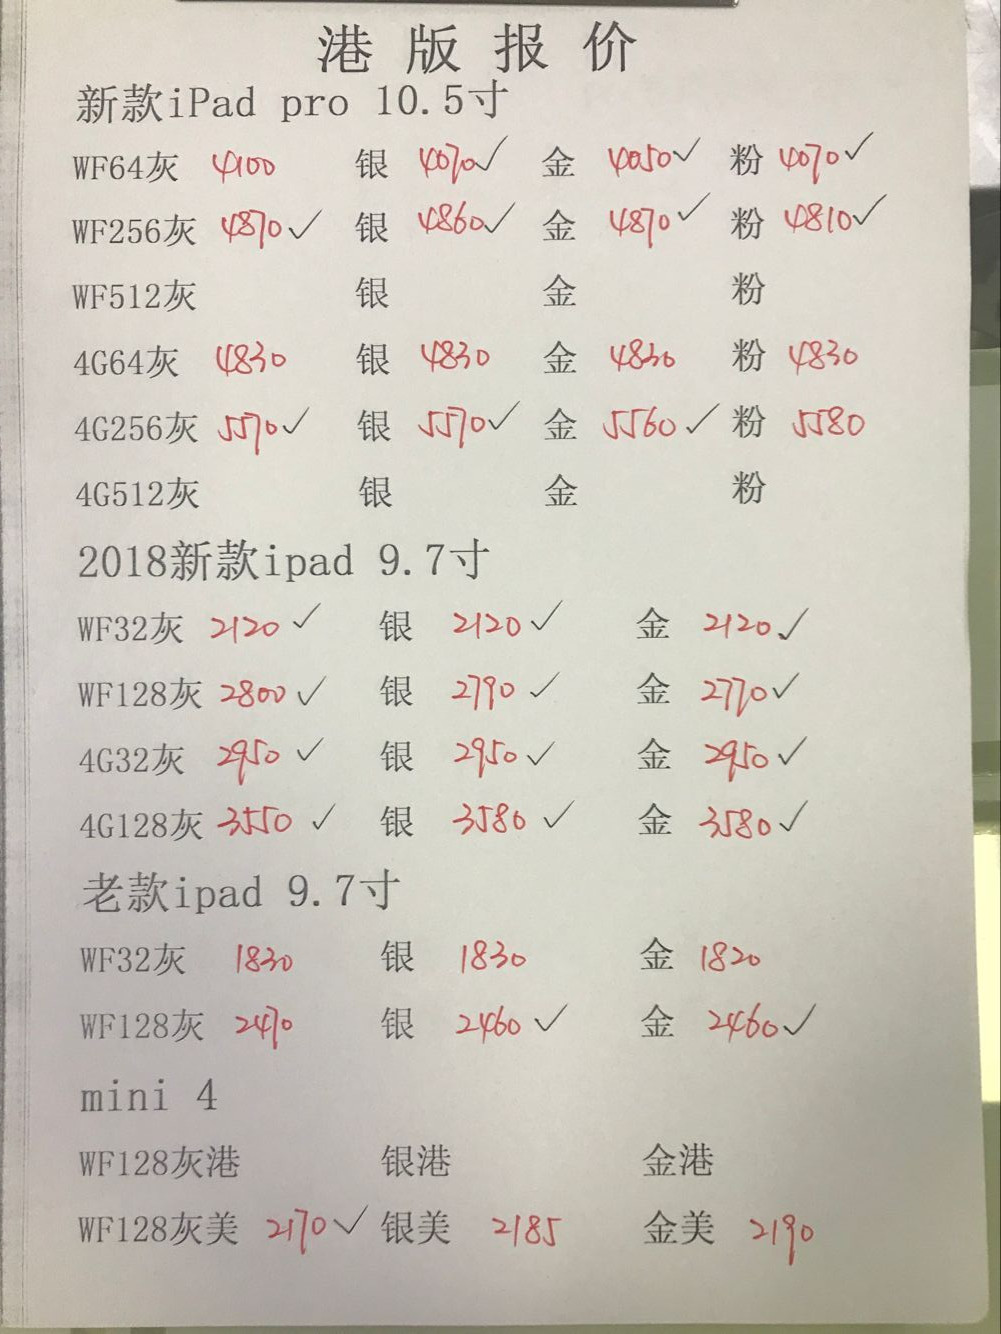 港版报价
新款iPad pro 10.5寸
WF64灰 4100 银 4070✓ 金 4050✓ 粉 4070✓
WF256灰 4870✓ 银 4860✓ 金 4870✓ 粉 4810✓
WF512灰 银 金 粉
4G64灰 4830 银 4830 金 4830 粉 4830
4G256灰 5570✓ 银 5570✓ 金 5560✓ 粉 5580
4G512灰 银 金 粉
2018新款ipad 9.7寸
WF32灰 2120✓ 银 2120✓ 金 2120✓
WF128灰 2800✓ 银 2790✓ 金 2770✓
4G32灰 2950✓ 银 2950✓ 金 2950✓
4G128灰 3550✓ 银 3580✓ 金 3580✓
老款ipad 9.7寸
WF32灰 1830 银 1830 金 1820
WF128灰 2470 银 2460✓ 金 2460✓
mini 4
WF128灰港 银港 金港
WF128灰美 2170✓ 银美 2185 金美 2190